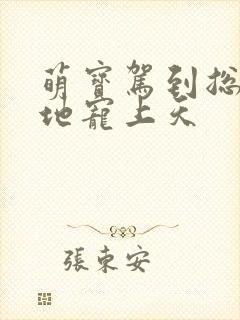 萌寶駕到總
地寵上天
張東安